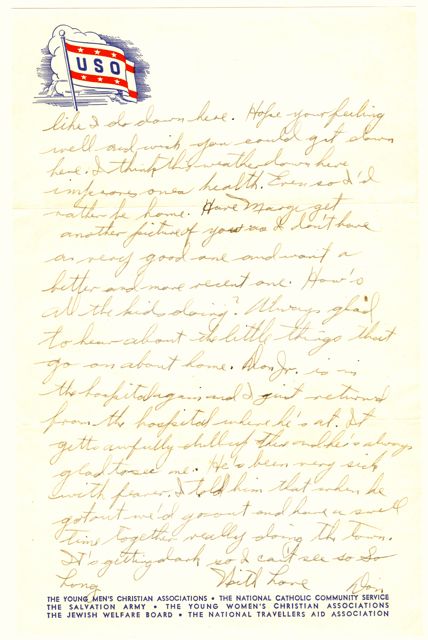 USO
like I do down here. Hope your feeling
well and wish you could get down
here. I think this weather down here
improves ones health. Even so I'd
rather be home. Have Marge get
another picture of you as I don't have
a very good one and want a
better and more recent one. How's
all the kids doing? Always glad
to hear about the little things that
go on about home. Don Jr. is in
the hospital again and I just returned
from the hospital where he's at. It
gets awfully dull up there and he's always
glad to see me. He's been very sick
with fever. I told him that when he
got out we'd go out and have a swell
time together really doing the town.
It's getting dark so I can't see so So
Long
With Love
Don
THE YOUNG MEN'S CHRISTIAN ASSOCIATIONS • THE NATIONAL CATHOLIC COMMUNITY SERVICE
THE SALVATION ARMY • THE YOUNG WOMEN'S CHRISTIAN ASSOCIATIONS
THE JEWISH WELFARE BOARD • THE NATIONAL TRAVELLERS AID ASSOCIATION